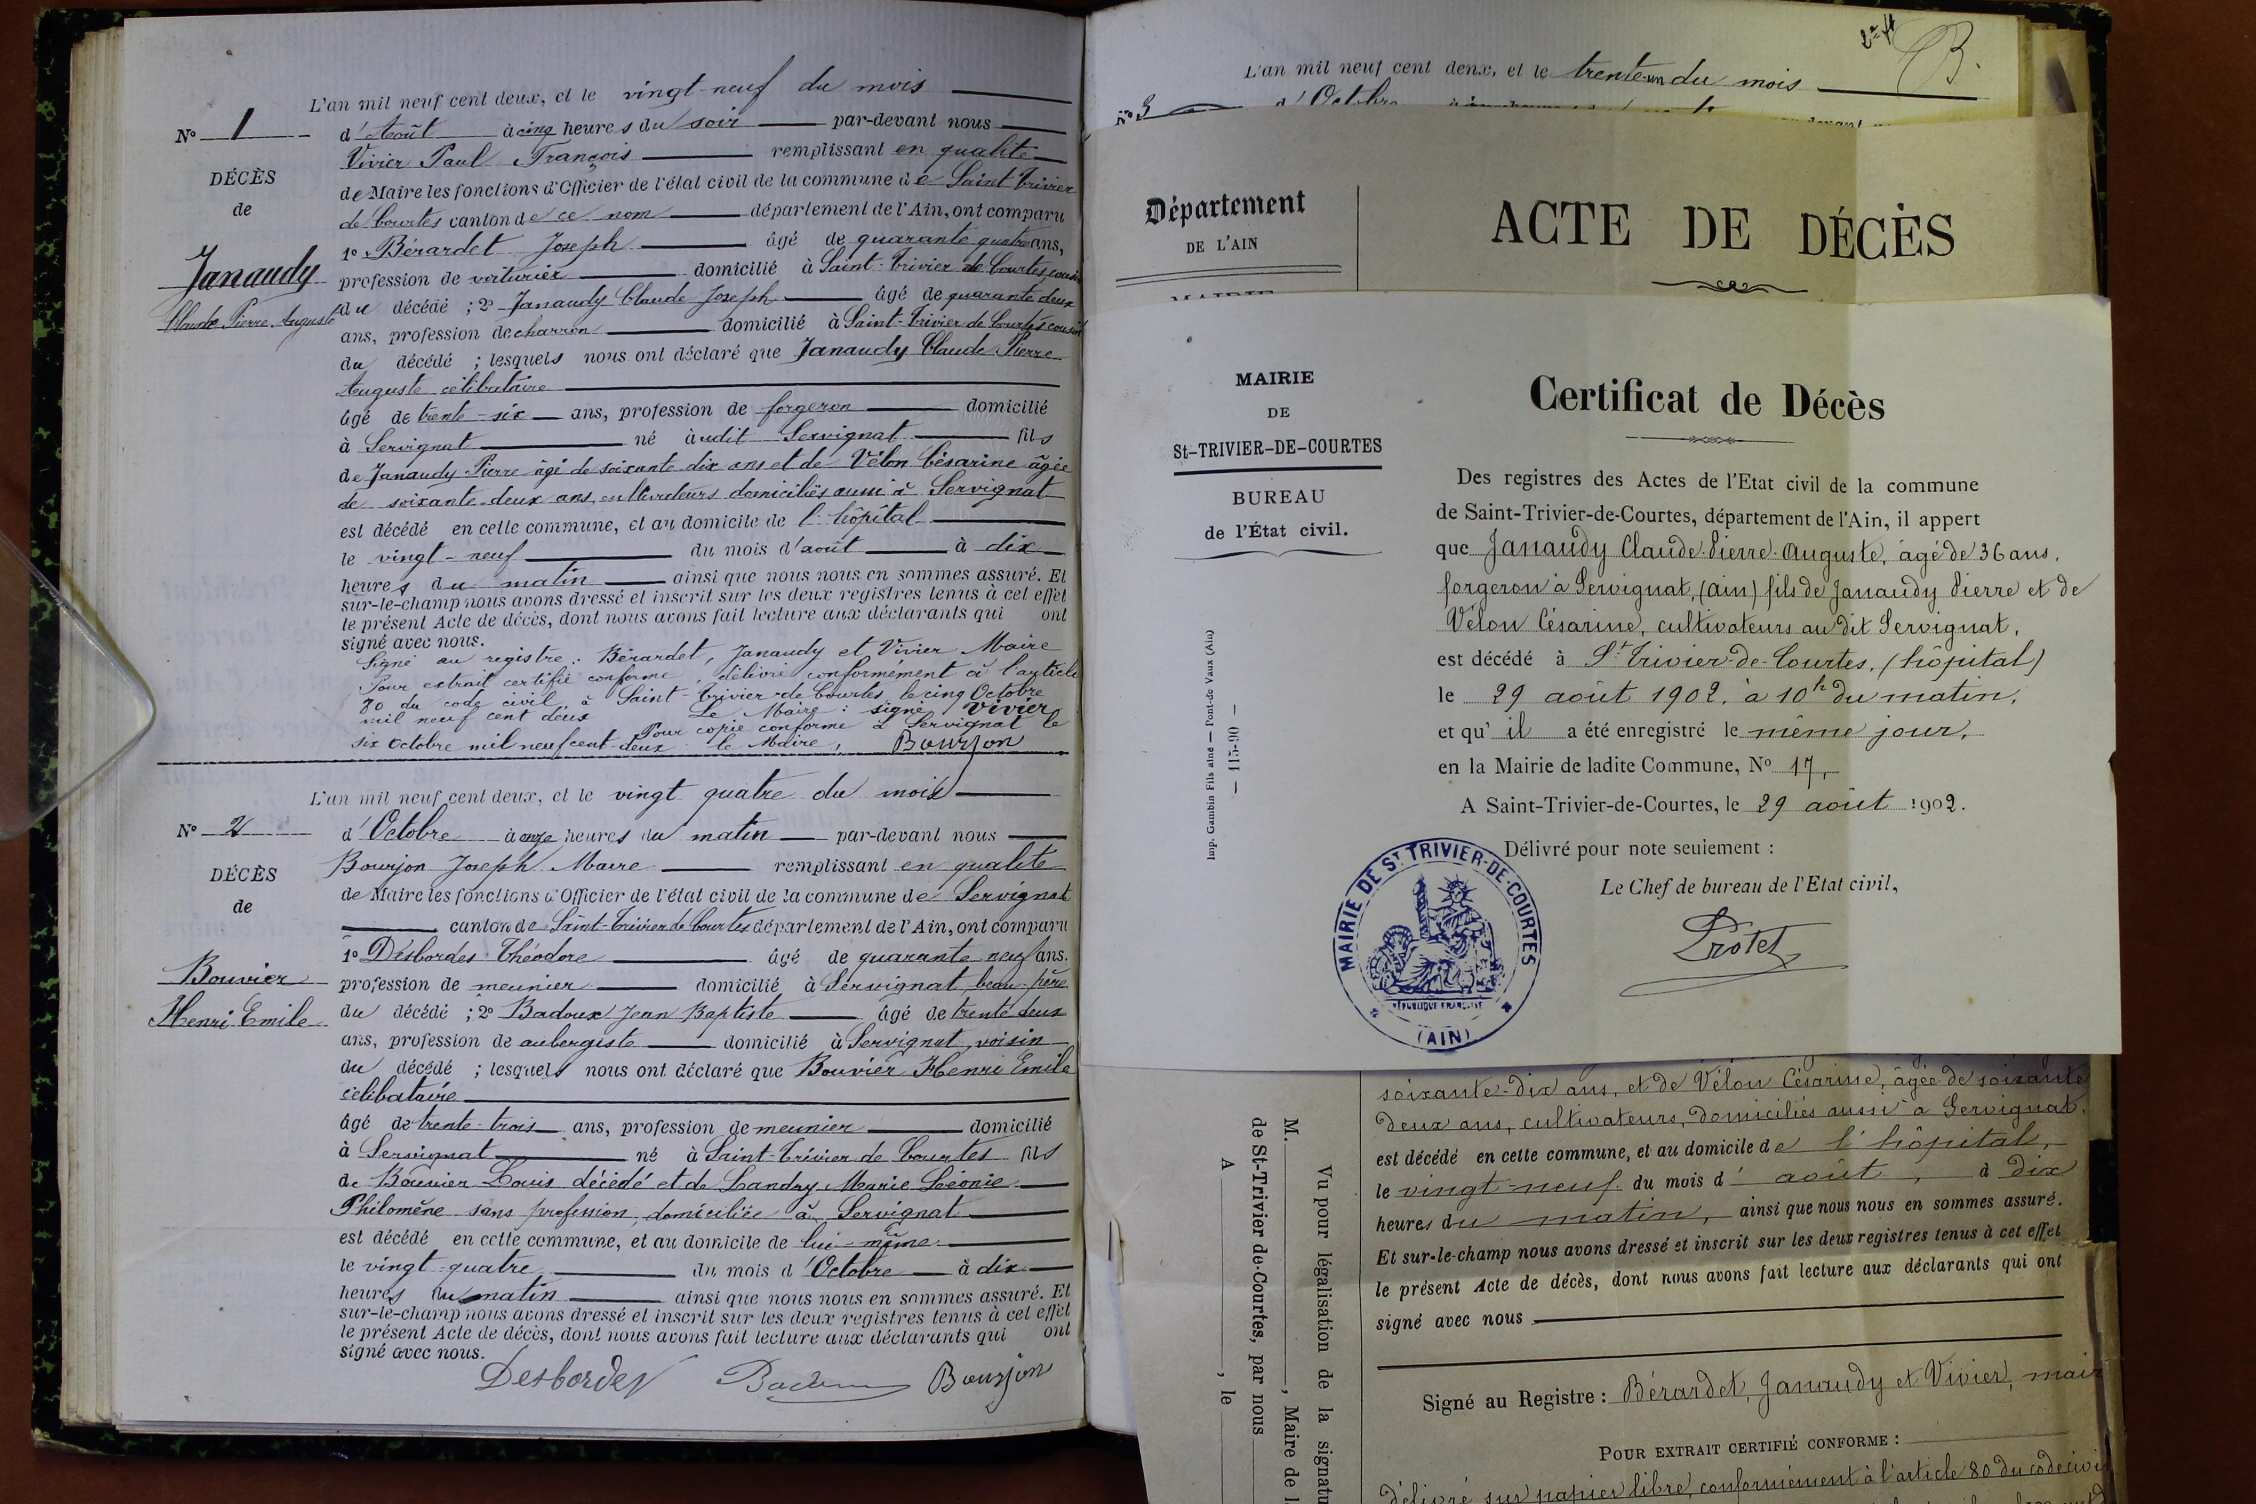 L'an mil neuf cent deux, et le vingt-neuf du mois
N° 1
d'Août à cinq heures du soir par-devant nous
Vivier Paul François remplissant en qualité
DÉCÈS
de Maire les fonctions d'Officier de l'état civil de la commune de Saint-Trivier
de
de Courtes canton de ce nom département de l'Ain, ont comparu
1° Bérardet Joseph âgé de quarante quatre ans,
Janaudy
profession de voiturier domicilié à Saint-Trivier de Courtes, cousin
Claude Pierre Auguste
du décédé ; 2° Janaudy Claude Joseph âgé de quarante deux
ans, profession de charron domicilié à Saint-Trivier de Courtes cousin
du décédé ; lesquels nous ont déclaré que Janaudy Claude Pierre
Auguste célibataire
âgé de trente-six ans, profession de forgeron domicilié
à Servignat né àudit Servignat fils
de Janaudy Pierre âgé de soixante dix ans et de Vélon Césarine âgée
de soixante-deux ans, cultivateurs domiciliés aussi à Servignat
est décédé en cette commune, et au domicile de l'hôpital
le vingt-neuf du mois d'août à dix
heures du matin ainsi que nous nous en sommes assuré. Et
sur-le-champ nous avons dressé et inscrit sur les deux registres tenus à cet effet
le présent Acte de décès, dont nous avons fait lecture aux déclarants qui ont
signé avec nous.
Signé au registre : Bérardet, Janaudy et Vivier Maire
Pour extrait certifié conforme, délivré conformément à l'article
80 du code civil, à Saint-Trivier-de Courtes, le cinq Octobre
mil neuf cent deux Le Maire : signé Vivier
Pour copie conforme à Servignat le
six octobre mil neuf cent deux le Maire, Bourjon
L'an mil neuf cent deux, et le vingt quatre du mois
N° 2
d'Octobre à onze heures du matin par-devant nous
Bourjon Joseph Maire remplissant en qualité
DÉCÈS
de Maire les fonctions d'Officier de l'état civil de la commune de Servignat
de
canton de Saint-Trivier de Courtes département de l'Ain, ont comparu
1° Desbordes Théodore âgé de quarante neuf ans.
Bouvier
profession de meunier domicilié à Servignat, beau-père
Henri Emile
du décédé ; 2° Badoux Jean Baptiste âgé de trente deux
ans, profession de aubergiste domicilié à Servignat, voisin
du décédé ; lesquels nous ont déclaré que Bouvier Henri Emile
célibataire
âgé de trente-trois ans, profession de meunier domicilié
à Servignat né à Saint-Trivier de Courtes fils
de Bouvier Louis décédé et de Landry Marie Léonie
Philomène sans profession, domiciliée à Servignat
est décédé en cette commune, et au domicile de lui-même
le vingt-quatre du mois d'Octobre à dix
heures du matin ainsi que nous nous en sommes assuré. Et
sur-le-champ nous avons dressé et inscrit sur les deux registres tenus à cet effet
le présent Acte de décès, dont nous avons fait lecture aux déclarants qui ont
signé avec nous.
Desbordes Badoux Bourjon
B.
L'an mil neuf cent deux, et le trente-un du mois
N° 3
d'Octobre
Département
DE L'AIN
ACTE DE DÉCÈS
MAIRIE
MAIRIE
DE
St-TRIVIER-DE-COURTES
BUREAU
de l'État civil.
Imp. Gambin Fils aîné — Pont-de Vaux (Ain)
— 115-90 —
Certificat de Décès
Des registres des Actes de l'Etat civil de la commune
de Saint-Trivier-de-Courtes, département de l'Ain, il appert
que Janaudy Claude-Pierre-Auguste, âgé de 36 ans,
forgeron à Servignat, (Ain) fils de Janaudy Pierre et de
Vélon Césarine, cultivateurs au dit Servignat,
est décédé à St Trivier-de-Courtes, (hôpital)
le 29 août 1902, à 10h du matin,
et qu' il a été enregistré le même jour,
en la Mairie de ladite Commune, N° 17,
A Saint-Trivier-de-Courtes, le 29 août 1902.
Délivré pour note seulement :
Le Chef de bureau de l'Etat civil,
Protet
MAIRIE DE ST TRIVIER-DE-COURTES
RÉPUBLIQUE FRANÇAISE
(AIN)
soixante-dix ans, et de Vélon Césarine, âgée de soixante
deux ans, cultivateurs, domiciliés aussi à Servignat,
est décédé en cette commune, et au domicile de l'hôpital,
le vingt-neuf du mois d'août, à dix
heures du matin, ainsi que nous nous en sommes assuré.
Et sur-le-champ nous avons dressé et inscrit sur les deux registres tenus à cet effet
le présent Acte de décès, dont nous avons fait lecture aux déclarants qui ont
signé avec nous
Signé au Registre : Bérardet, Janaudy et Vivier, mair
POUR EXTRAIT CERTIFIÉ CONFORME :
Délivré sur papier libre, conformément à l'article 80 du code civi
Vu pour légalisation de la signatu
M. , Maire de l
de St-Trivier-de-Courtes, par nous
A , le